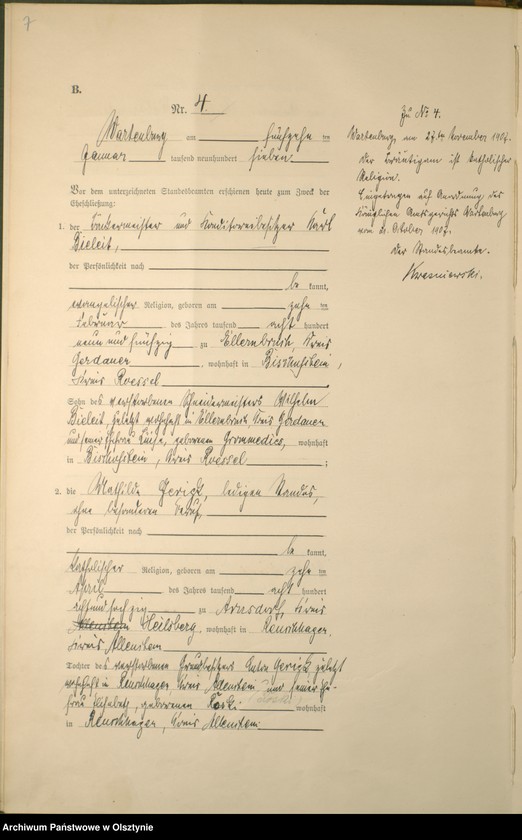 7
B.
Nr. 4.
Wartenburg am fünfzehn ten
Januar tausend neunhundert sieben
Vor dem unterzeichneten Standesbeamten erschienen heute zum Zweck der
Eheschließung:
1. der Bäckermeister und Konditoreibesitzer Karl
Bieleit,
der Persönlichkeit nach
be kannt,
evangelischer Religion, geboren am zehn ten
Februar des Jahres tausend acht hundert
neun und fünfzig zu Ellernbruch, Kreis
Gerdauen, wohnhaft in Bischofstein,
Kreis Roessel
Sohn des verstorbenen Schneidermeisters Wilhelm
Bieleit, zuletzt wohnhaft in Ellernbruch Kreis Gerdauen
und seiner Ehefrau Luise, geborenen wohnhaft
in Bischofstein, Kreis Roessel ;
2. die Mathilde Gerigk, ledigen Standes,
ohne besonderen Beruf,
der Persönlichkeit nach
be kannt,
katholischer Religion, geboren am zehn ten
April des Jahres tausend acht hundert
acht und sechzig zu Arnsdorf, Kreis
Allenstein Heilsberg, wohnhaft in Reuschhagen,
Kreis Allenstein
Tochter des verstorbenen Anton Gerigk zuletzt
wohnhaft in Reuschhagen Kreis Allenstein und seiner Ehe-
frau Elisabeth, geborenen wohnhaft
in Reuschhagen, Kreis Allenstein.
Zu No 4.
Wartenburg, am 27ten November 1907.
Der Bräutigam ist katholischer
Religion.
Eingetragen auf Anordnung des
Königlichen Amtsgerichts Wartenburg
vom October 1907.
Der Standesbeamte.
Archiwum Państwowe w Olsztynie